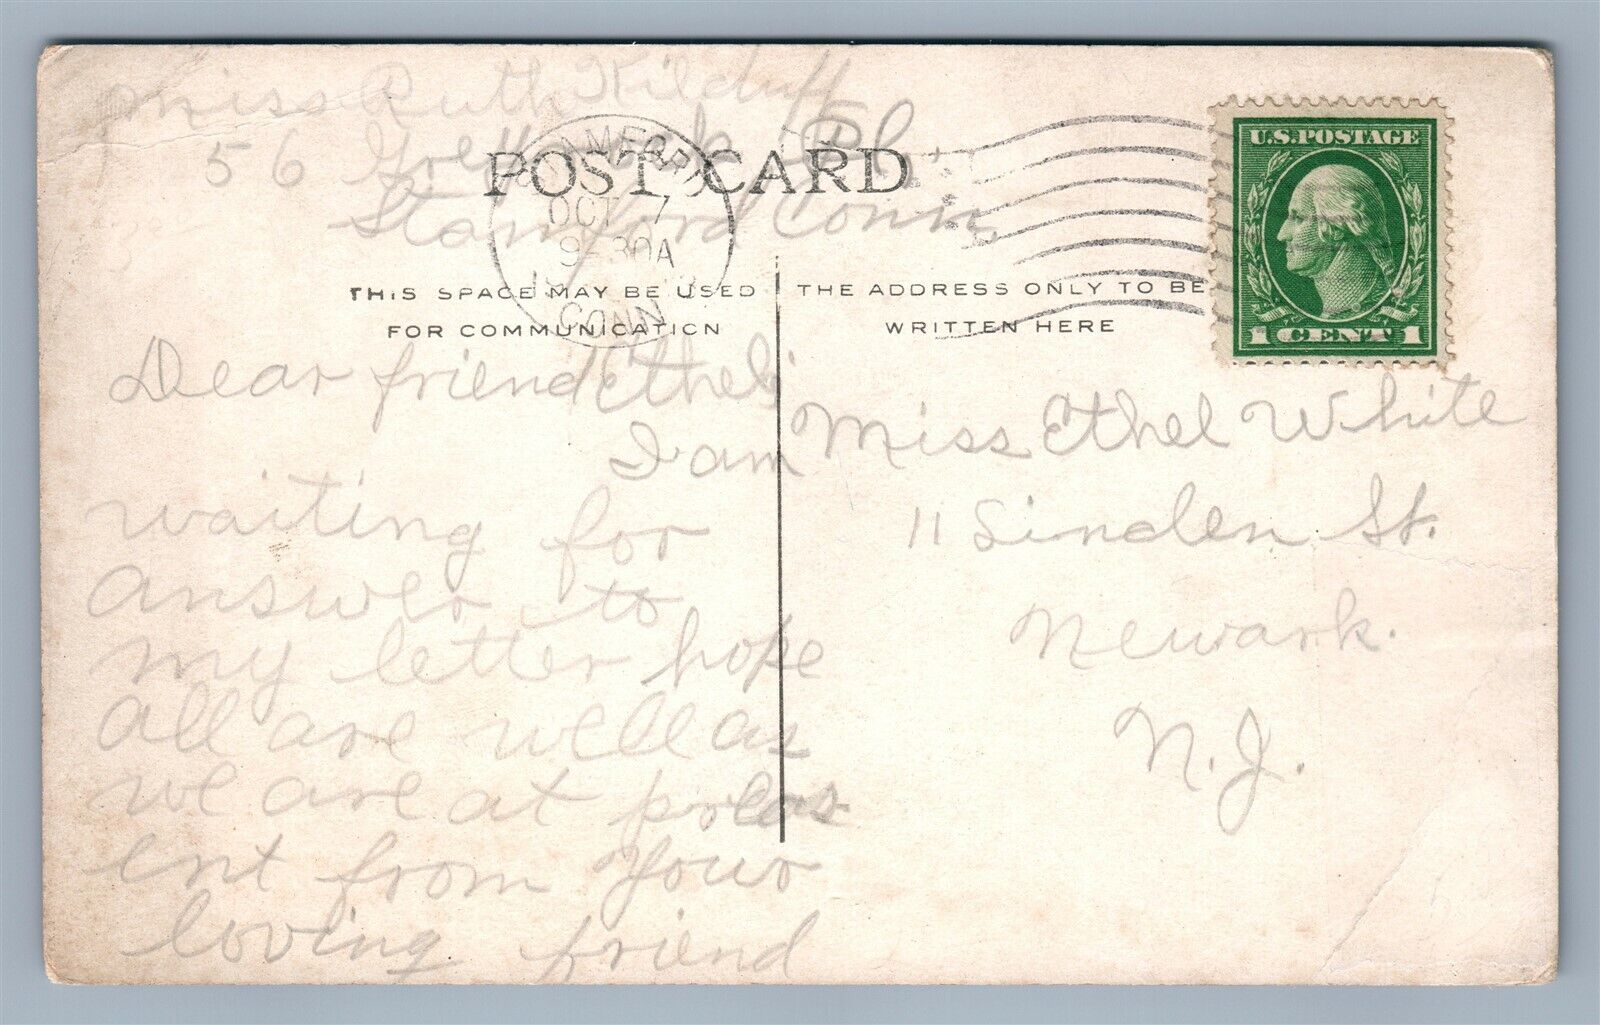 Miss Ruth Kilduff
56 Pl.
Stamford Conn.
POST CARD
STAMFORD
OCT 7
9-30A
CONN.
THIS SPACE MAY BE USED
FOR COMMUNICATION
THE ADDRESS ONLY TO BE
WRITTEN HERE
U.S. POSTAGE
1 CENT 1
Dear friend Ethel;
I am
waiting for
answer to
my letter hope
all are well as
we are at pres
ent from your
loving friend
Miss Ethel White
11 Linden St.
Newark.
N.J.